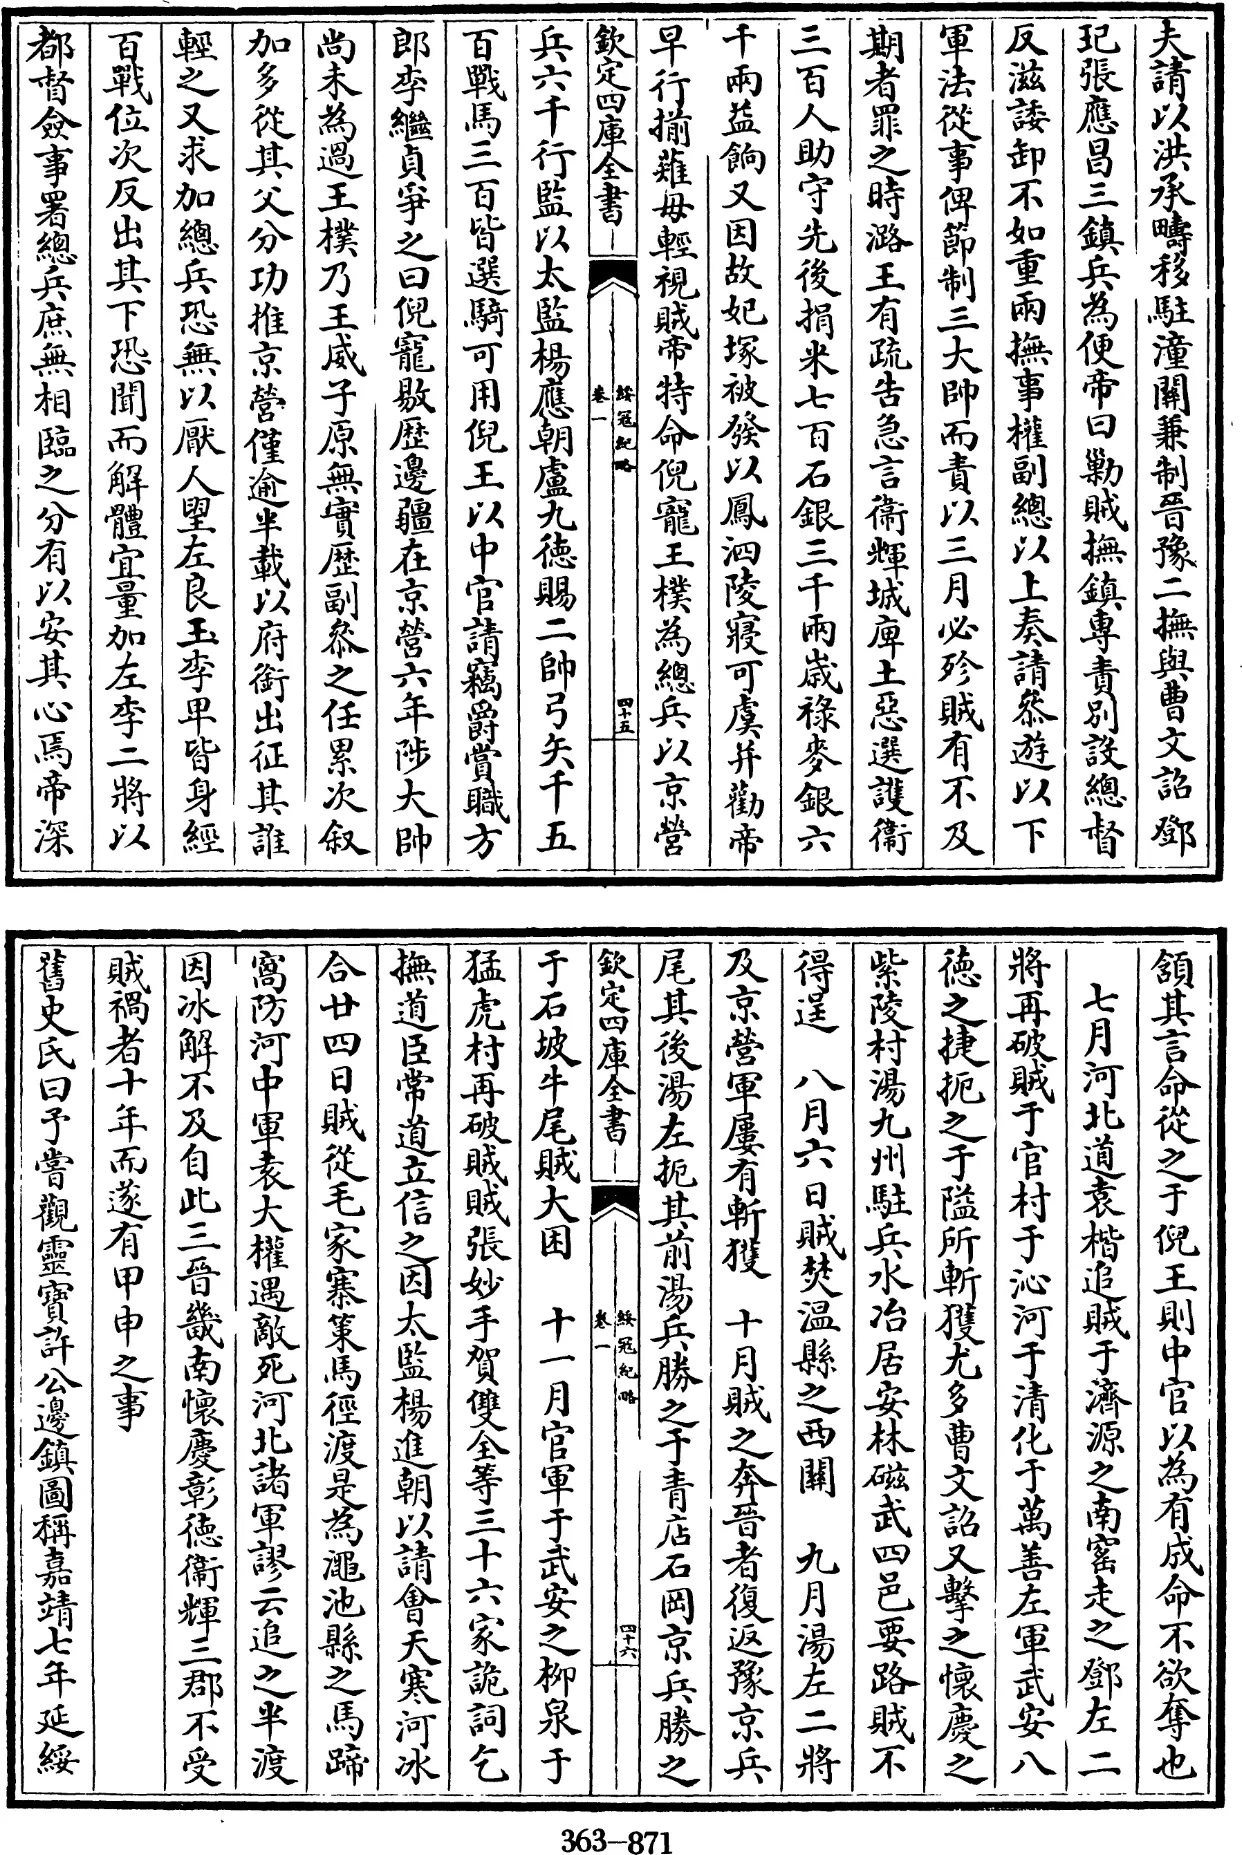 夫請以洪承疇移駐潼關兼制晉豫二撫與曹文詔鄧
玘張應昌三鎮兵為便帝曰勦賊撫鎮専責別設總督
反滋諉卸不如重兩撫事權副總以上奏請叅遊以下
軍法從事俾節制三大帥而責以三月必殄賊有不及
期者罪之時潞王有疏告急言衞輝城庳土惡選護衞
三百人助守先後捐米七百石銀三千兩歲祿麥銀六
千兩益餉又因故妃塚被發以鳳泗陵寢可虞并勸帝
早行揃薙毋輕視賊帝特命倪寵王樸為總兵以京營
欽定四庫全書
綏冦紀略
卷一
四十五
兵六千行監以太監楊應朝盧九德賜二帥弓矢千五
百戰馬三百皆選騎可用倪王以中官請竊爵賞職方
郎李繼貞爭之曰倪寵敭歴邊疆在京營六年陟大帥
尚未為過王樸乃王威子原無實歴副叅之任累次叙
加多從其父分功推京營僅逾半載以府銜出征其誰
輕之又求加總兵恐無以厭人望左良玉李卑皆身經
百戰位次反出其下恐聞而解體宜量加左李二將以
都督僉事署總兵庶無相臨之分有以安其心焉帝深
頷其言命從之于倪王則中官以為有成命不欲奪也
七月河北道袁楷追賊于濟源之南窑走之鄧左二
將再破賊于官村于沁河于清化于萬善左軍武安八
德之捷扼之于隘所斬獲尤多曹文詔又擊之懷慶之
紫陵村湯九州駐兵水冶居安林磁武四邑要路賊不
得逞　八月六日賊焚温縣之西關　九月湯左二將
及京營軍屢有斬獲　十月賊之奔晉者復返豫京兵
尾其後湯左扼其前湯兵勝之于青店石岡京兵勝之
欽定四庫全書
綏冦紀略
卷一
四十六
于石坡牛尾賊大困　十一月官軍于武安之柳泉于
猛虎村再破賊賊張妙手賀雙全等三十六家詭詞乞
撫道臣常道立信之因太監楊進朝以請會天寒河冰
合廿四日賊從毛家寨策馬徑渡是為澠池縣之馬蹄
窩防河中軍袁大權遇敵死河北諸軍謬云追之半渡
因冰解不及自此三晉畿南懷慶彰德衞輝三郡不受
賊禍者十年而遂有甲申之事
舊史氏曰予嘗觀靈寶許公邊鎮圖稱嘉靖七年延綏
363-871